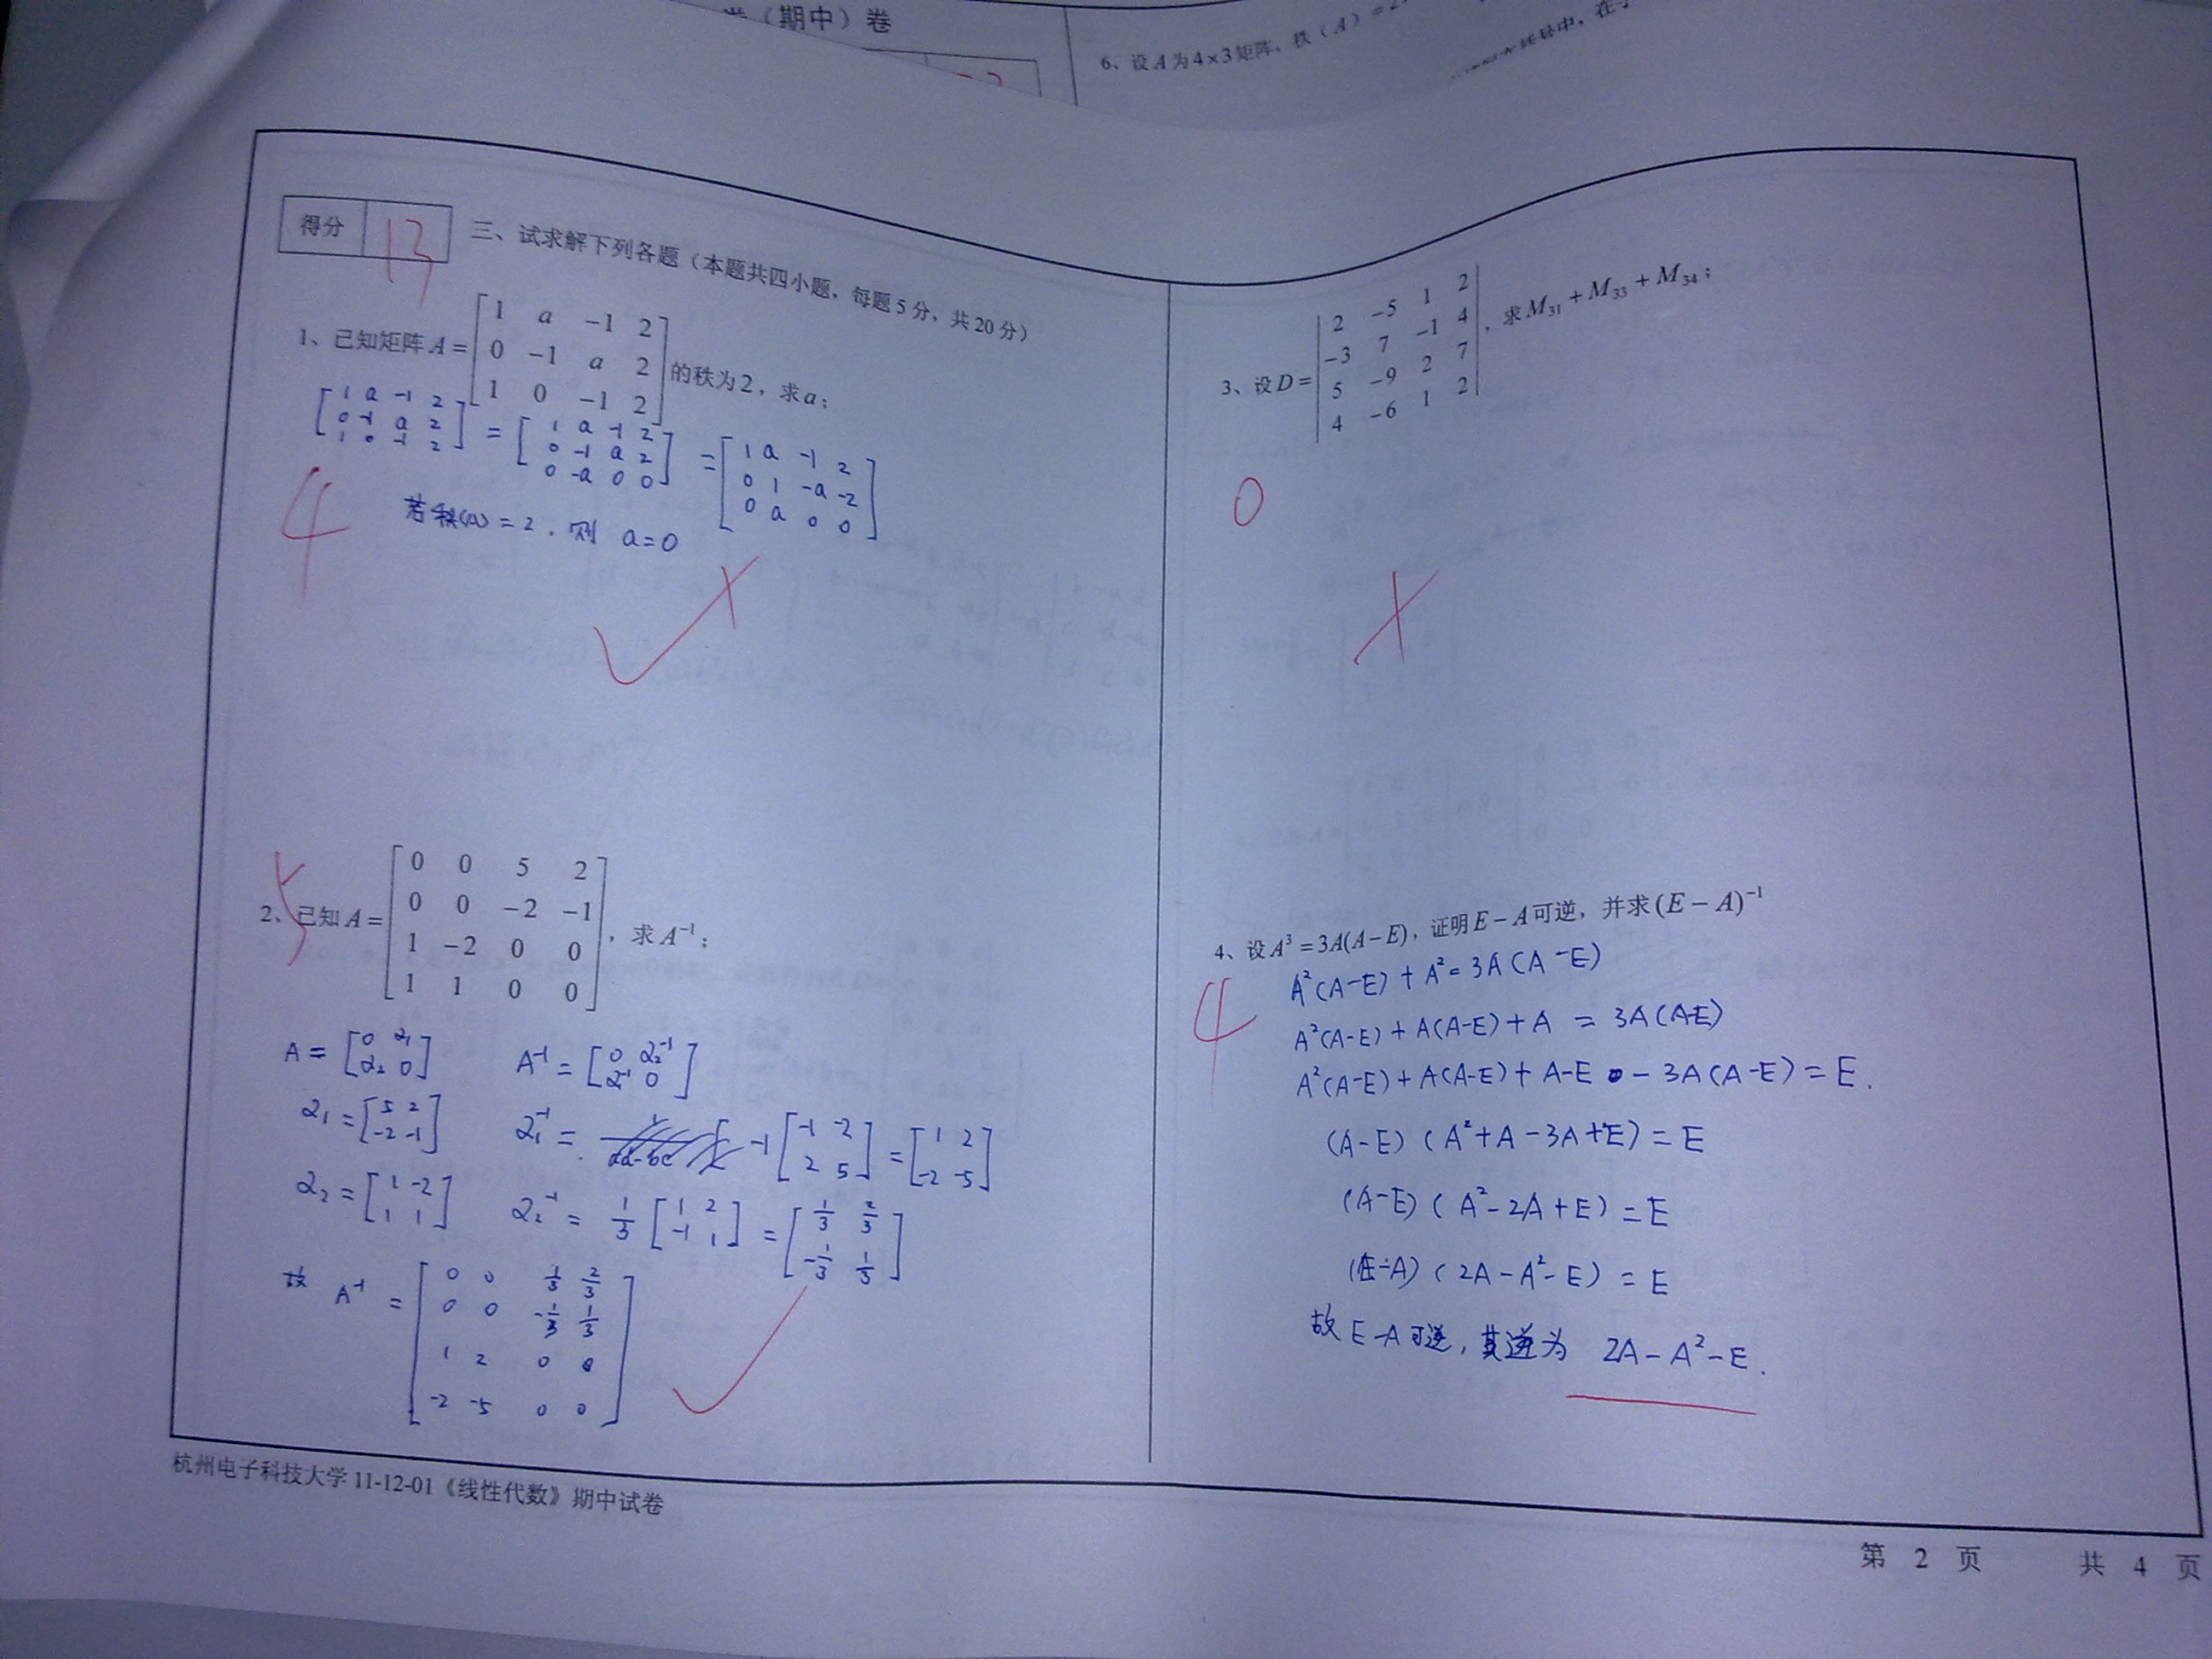 （期中）卷
6、设 A 为 4×3 矩阵，秩（A）=2
得分 13
三、试求解下列各题（本题共四小题，每题 5 分，共 20 分）
1、已知矩阵 A = [1 a -1 2; 0 -1 a 2; 1 0 -1 2] 的秩为 2，求 a；
[1 a -1 2; 0 -1 a 2; 1 0 -1 2] = [1 a -1 2; 0 -1 a 2; 0 -a 0 0] = [1 a -1 2; 0 1 -a -2; 0 a 0 0]
4
若秩(A) = 2，则 a=0
2、已知 A = [0 0 5 2; 0 0 -2 -1; 1 -2 0 0; 1 1 0 0]，求 A⁻¹；
5
A = [0 α₁; α₂ 0] A⁻¹ = [0 α₂⁻¹; α₁⁻¹ 0]
α₁ = [5 2; -2 -1] α₁⁻¹ = -1 [-1 -2; 2 5] = [1 2; -2 -5]
α₂ = [1 -2; 1 1] α₂⁻¹ = 1/3 [1 2; -1 1] = [1/3 2/3; -1/3 1/3]
故 A⁻¹ = [0 0 1/3 2/3; 0 0 -1/3 1/3; 1 2 0 0; -2 -5 0 0]
3、设 D = |2 -5 1 2; -3 7 -1 4; 5 -9 2 7; 4 -6 1 2|，求 M₃₁ + M₃₃ + M₃₄；
0
4、设 A³ = 3A(A-E)，证明 E-A 可逆，并求 (E-A)⁻¹
4
A²(A-E) + A² = 3A(A-E)
A²(A-E) + A(A-E) + A = 3A(A-E)
A²(A-E) + A(A-E) + A-E - 3A(A-E) = E.
(A-E)(A²+A-3A+E) = E
(A-E)(A²-2A+E) = E
(E-A)(2A-A²-E) = E
故 E-A 可逆，其逆为 2A-A²-E.
杭州电子科技大学 11-12-01《线性代数》期中试卷
第 2 页 共 4 页